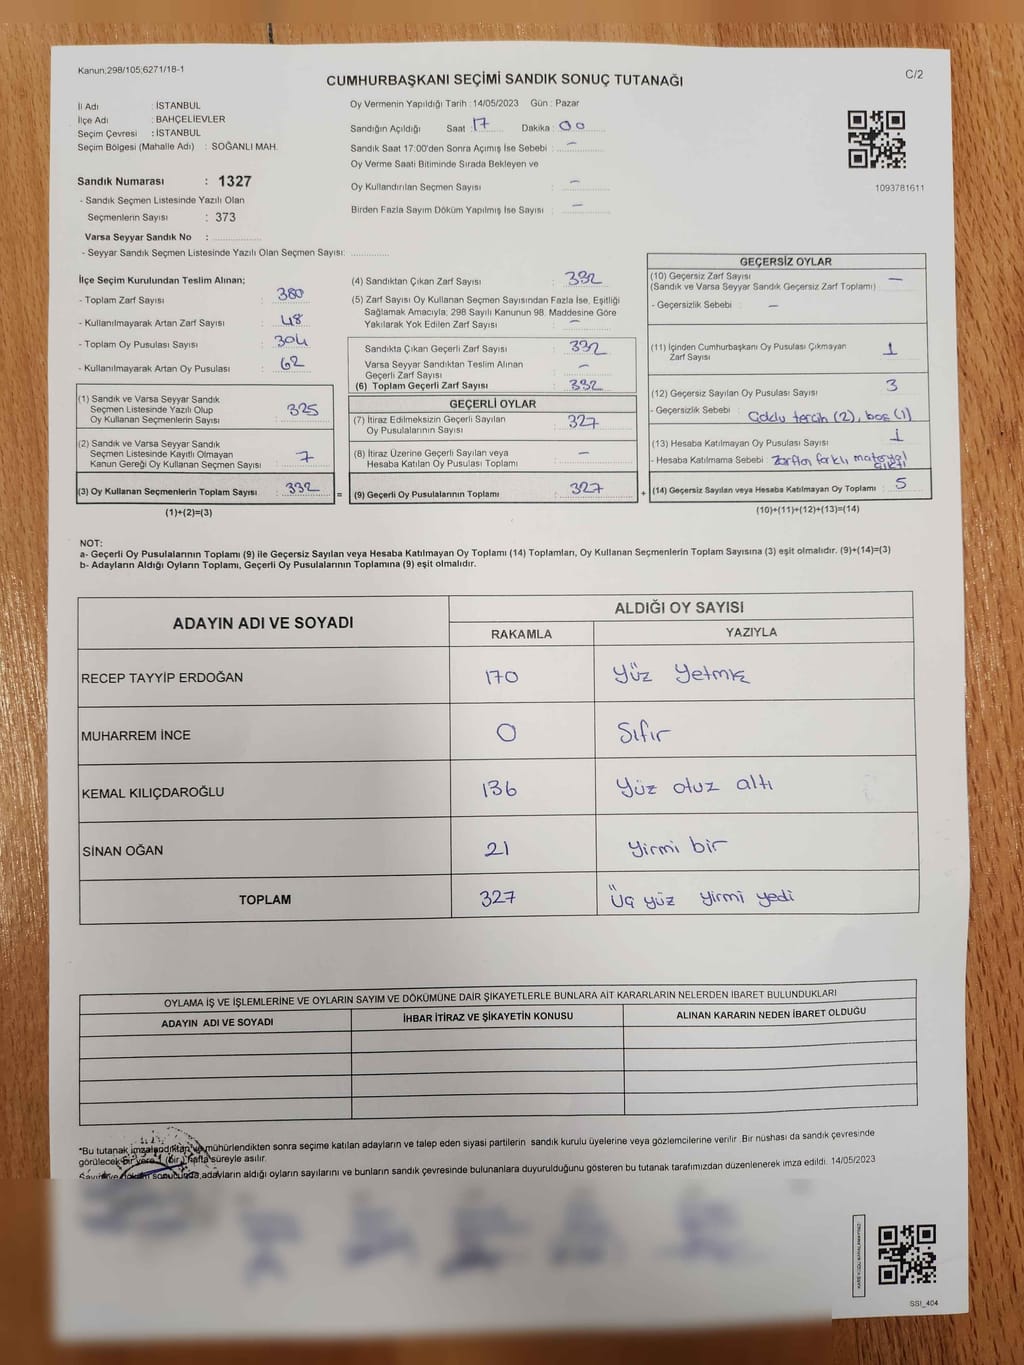 Kanun;298/105;6271/18-1
CUMHURBAŞKANI SEÇİMİ SANDIK SONUÇ TUTANAĞI
C/2
İl Adı : İSTANBUL
İlçe Adı : BAHÇELİEVLER
Seçim Çevresi : İSTANBUL
Seçim Bölgesi (Mahalle Adı) : SOĞANLI MAH.
Sandık Numarası : 1327
- Sandık Seçmen Listesinde Yazılı Olan
Seçmenlerin Sayısı : 373
Varsa Seyyar Sandık No :
- Seyyar Sandık Seçmen Listesinde Yazılı Olan Seçmen Sayısı:
Oy Vermenin Yapıldığı Tarih : 14/05/2023 Gün : Pazar
Sandığın Açıldığı Saat : 17 Dakika : 00
Sandık Saat 17:00'den Sonra Açımış İse Sebebi : -
Oy Verme Saati Bitiminde Sırada Bekleyen ve
Oy Kullandırılan Seçmen Sayısı : -
Birden Fazla Sayım Döküm Yapılmış İse Sayısı : -
1093781611
İlçe Seçim Kurulundan Teslim Alınan;
- Toplam Zarf Sayısı : 380
- Kullanılmayarak Artan Zarf Sayısı : 48
- Toplam Oy Pusulası Sayısı : 304
- Kullanılmayarak Artan Oy Pusulası : 62
(1) Sandık ve Varsa Seyyar Sandık
Seçmen Listesinde Yazılı Olup
Oy Kullanan Seçmenlerin Sayısı : 325
(2) Sandık ve Varsa Seyyar Sandık
Seçmen Listesinde Kayıtlı Olmayan
Kanun Gereği Oy Kullanan Seçmen Sayısı : 7
(3) Oy Kullanan Seçmenlerin Toplam Sayısı : 332
(1)+(2)=(3)
=
(4) Sandıktan Çıkan Zarf Sayısı : 332
(5) Zarf Sayısı Oy Kullanan Seçmen Sayısından Fazla İse, Eşitliği
Sağlamak Amacıyla; 298 Sayılı Kanunun 98. Maddesine Göre
Yakılarak Yok Edilen Zarf Sayısı : -
Sandıkta Çıkan Geçerli Zarf Sayısı : 332
Varsa Seyyar Sandıktan Teslim Alınan
Geçerli Zarf Sayısı : -
(6) Toplam Geçerli Zarf Sayısı : 332
GEÇERLİ OYLAR
(7) İtiraz Edilmeksizin Geçerli Sayılan
Oy Pusulalarının Sayısı : 327
(8) İtiraz Üzerine Geçerli Sayılan veya
Hesaba Katılan Oy Pusulası Toplamı : -
(9) Geçerli Oy Pusulalarının Toplamı : 327
+
GEÇERSİZ OYLAR
(10) Geçersiz Zarf Sayısı -
(Sandık ve Varsa Seyyar Sandık Geçersiz Zarf Toplamı)
- Geçersizlik Sebebi : -
(11) İçinden Cumhurbaşkanı Oy Pusulası Çıkmayan
Zarf Sayısı 1
(12) Geçersiz Sayılan Oy Pusulası Sayısı 3
- Geçersizlik Sebebi : Çoklu tercih (2), boş (1)
(13) Hesaba Katılmayan Oy Pusulası Sayısı 1
- Hesaba Katılmama Sebebi : Zarftan farklı materyal
çıktı
(14) Geçersiz Sayılan veya Hesaba Katılmayan Oy Toplamı : 5
(10)+(11)+(12)+(13)=(14)
NOT:
a- Geçerli Oy Pusulalarının Toplamı (9) ile Geçersiz Sayılan veya Hesaba Katılmayan Oy Toplamı (14) Toplamları, Oy Kullanan Seçmenlerin Toplam Sayısına (3) eşit olmalıdır. (9)+(14)=(3)
b- Adayların Aldığı Oyların Toplamı, Geçerli Oy Pusulalarının Toplamına (9) eşit olmalıdır.
ADAYIN ADI VE SOYADI
ALDIĞI OY SAYISI
RAKAMLA YAZIYLA
RECEP TAYYİP ERDOĞAN 170 Yüz Yetmiş
MUHARREM İNCE 0 Sıfır
KEMAL KILIÇDAROĞLU 136 Yüz otuz altı
SİNAN OĞAN 21 Yirmi bir
TOPLAM 327 Üç yüz yirmi yedi
OYLAMA İŞ VE İŞLEMLERİNE VE OYLARIN SAYIM VE DÖKÜMÜNE DAİR ŞİKAYETLERLE BUNLARA AİT KARARLARIN NELERDEN İBARET BULUNDUKLARI
ADAYIN ADI VE SOYADI İHBAR İTİRAZ VE ŞİKAYETİN KONUSU ALINAN KARARIN NEDEN İBARET OLDUĞU
*Bu tutanak imzalandıktan ve mühürlendikten sonra seçime katılan adayların ve talep eden siyasi partilerin sandık kurulu üyelerine veya gözlemcilerine verilir .Bir nüshası da sandık çevresinde
görülecek bir yere 1 (bir) hafta süreyle asılır.
Sayım ve döküm sonucunda,adayların aldığı oyların sayılarını ve bunların sandık çevresinde bulunanlara duyurulduğunu gösteren bu tutanak tarafımızdan düzenlenerek imza edildi. 14/05/2023
SSİ_404